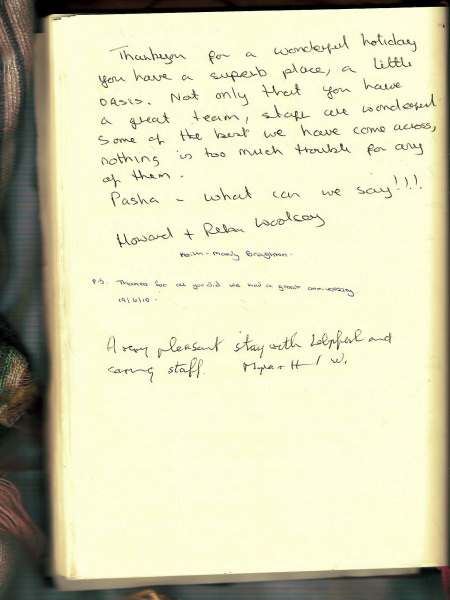 Thankyou for a wonderful holiday
you have a superb place, a little
oasis. Not only that you have
a great team, staff are wonderful
some of the best we have come across,
nothing is too much trouble for any
of them.
Pasha - what can we say!!!
Howard + Reba Woolsey
Keith - Mandy Broughton.
P.S. Thanks for all you did we had a great anniversary.
19/6/10.
A very pleasant stay with helpful and
caring staff. Myra + W.